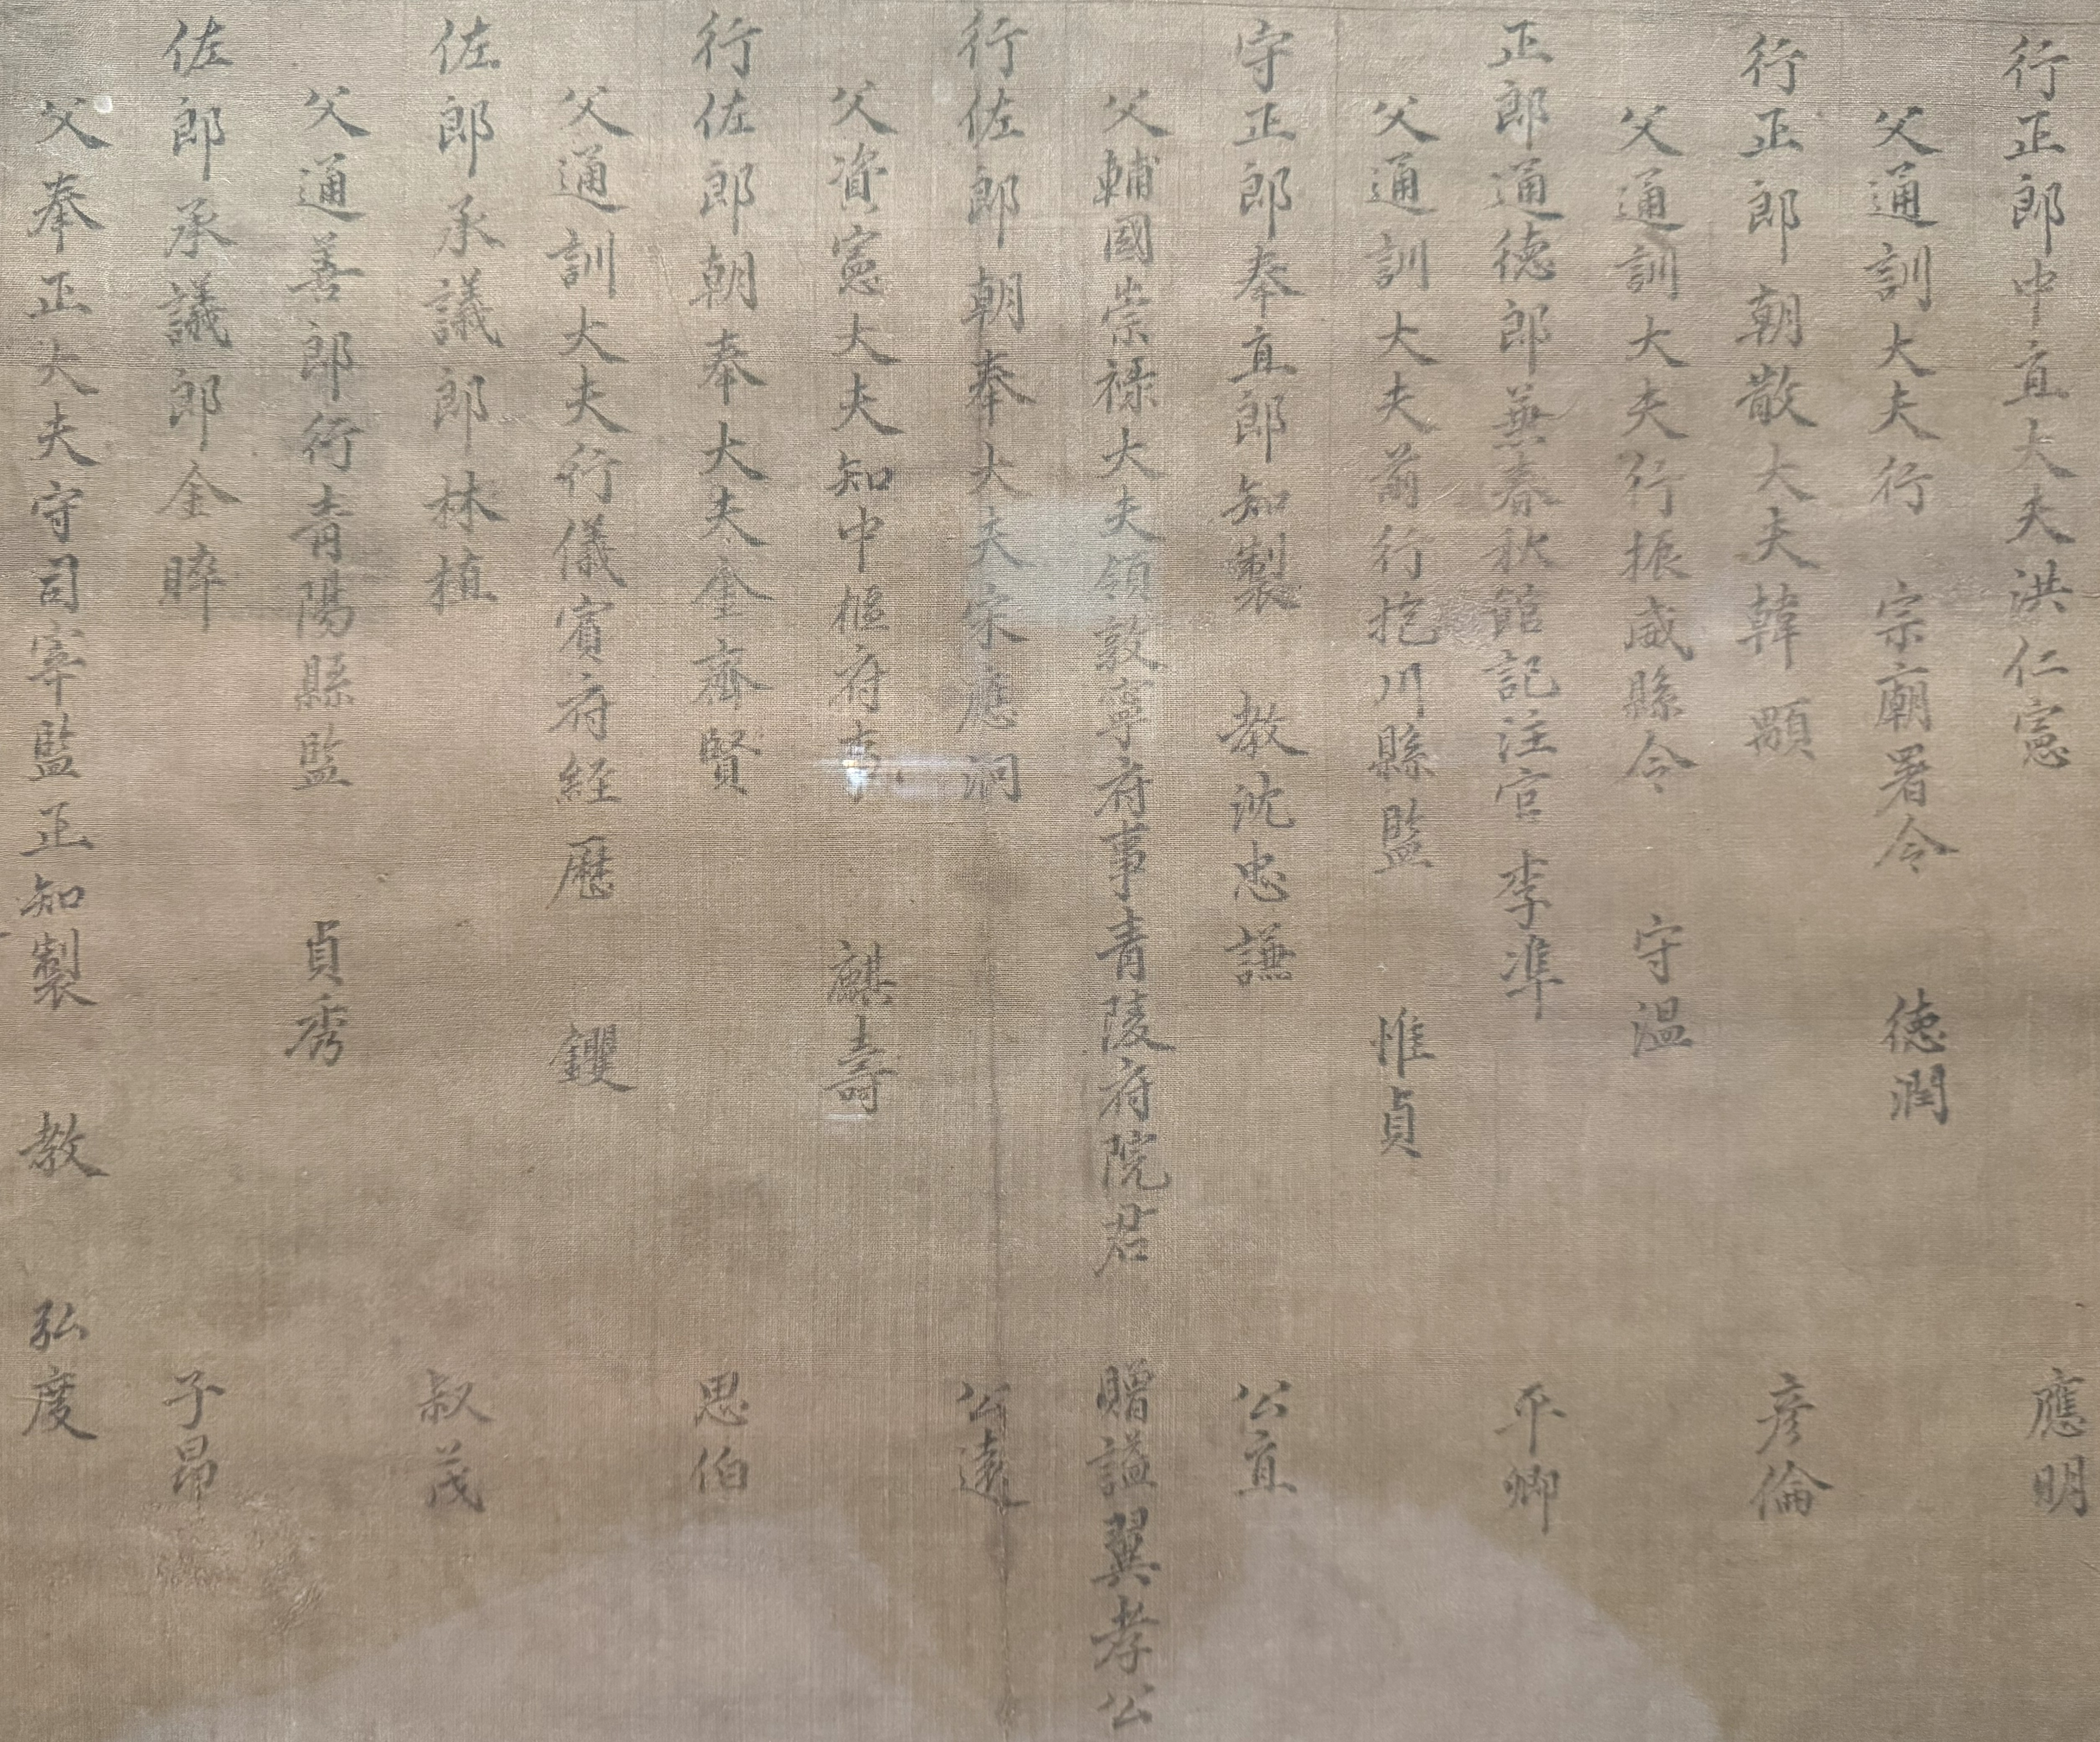 行正郎中直大夫洪仁憲 應明
父通訓大夫行 宗廟署令 德潤
行正郎朝散大夫韓顒 彦倫
父通訓大夫行振威縣令 守温
正郎通德郎兼春秋館記注官李準 平卿
父通訓大夫前行抱川縣監 惟貞
守正郎奉直郎知製 教沈忠謙 公直
父輔國崇祿大夫領敦寧府事青陵府院君 贈諡翼孝公
行佐郎朝奉大夫宋應泂 公遠
父資憲大夫知中樞府事 麒壽
行佐郎朝奉大夫金齊賢 思伯
父通訓大夫行儀賓府經歷 钁
佐郎承議郎林植 叔茂
父通善郎行青陽縣監 貞秀
佐郎承議郎金晬 子昂
父奉正大夫守司宰監正知製 教 弘度